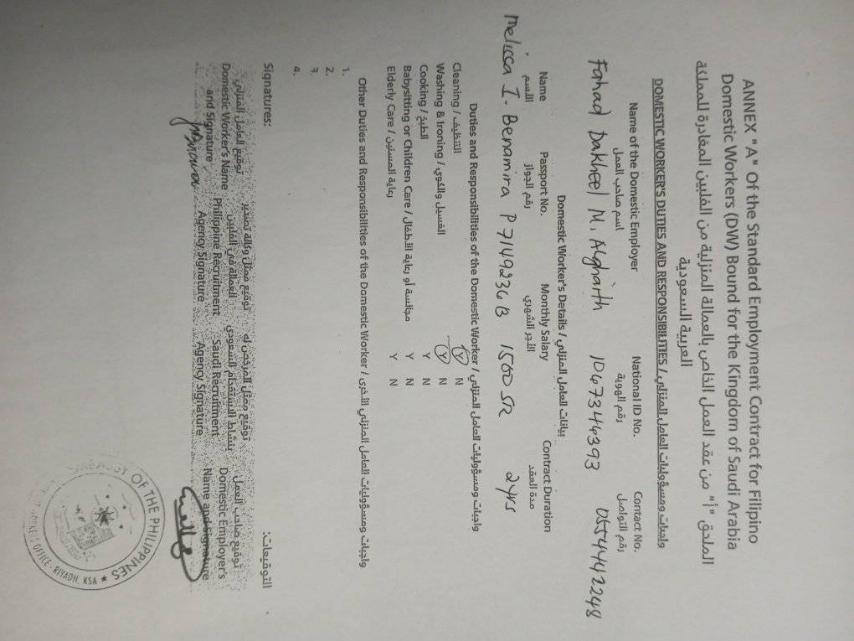 ANNEX "A" Of the Standard Employment Contract for Filipino
Domestic Workers (DW) Bound for the Kingdom of Saudi Arabia
الملحق "أ" من عقد العمل الخاص بالعمالة المنزلية من الفلبين المغادرة للمملكة
العربية السعودية
DOMESTIC WORKER'S DUTIES AND RESPONSIBILITIES / واجبات ومسؤوليات العامل المنزلي
Name of the Domestic Employer National ID No. Contact No.
اسم صاحب العمل رقم الهوية رقم التواصل
Fahad Dakheel M. Alghaith 1047344393 0554442248
Domestic Worker's Details / بيانات العامل المنزلي
Name Passport No. Monthly Salary Contract Duration
الاسم رقم الجواز الأجر الشهري مدة العقد
Melissa I. Benamira P7140236B 1500 SR 2 yrs
Duties and Responsibilities of the Domestic Worker / واجبات ومسؤوليات العامل المنزلي
Cleaning / التنظيف Y N
Washing & Ironing / الغسيل والكوي Y N
Cooking / الطبخ Y N
Babysitting or Children Care / مجالسة أو رعاية الأطفال Y N
Elderly Care / رعاية المسنين Y N
Other Duties and Responsibilities of the Domestic Worker / واجبات ومسؤوليات العامل المنزلي الأخرى
1.
2.
3.
4.
Signatures: التوقيعات:
توقيع العامل المنزلي توقيع ممثل وكالة تصدير توقيع ممثل المرخص له توقيع صاحب العمل
العمالة في الفلبين بنشاط الاستقدام السعودي
Domestic Worker's Name Philippine Recruitment Saudi Recruitment Domestic Employer's
and Signature Agency Signature Agency Signature Name and Signature
EMBASSY OF THE PHILIPPINES
OFFICE - RIYADH, KSA